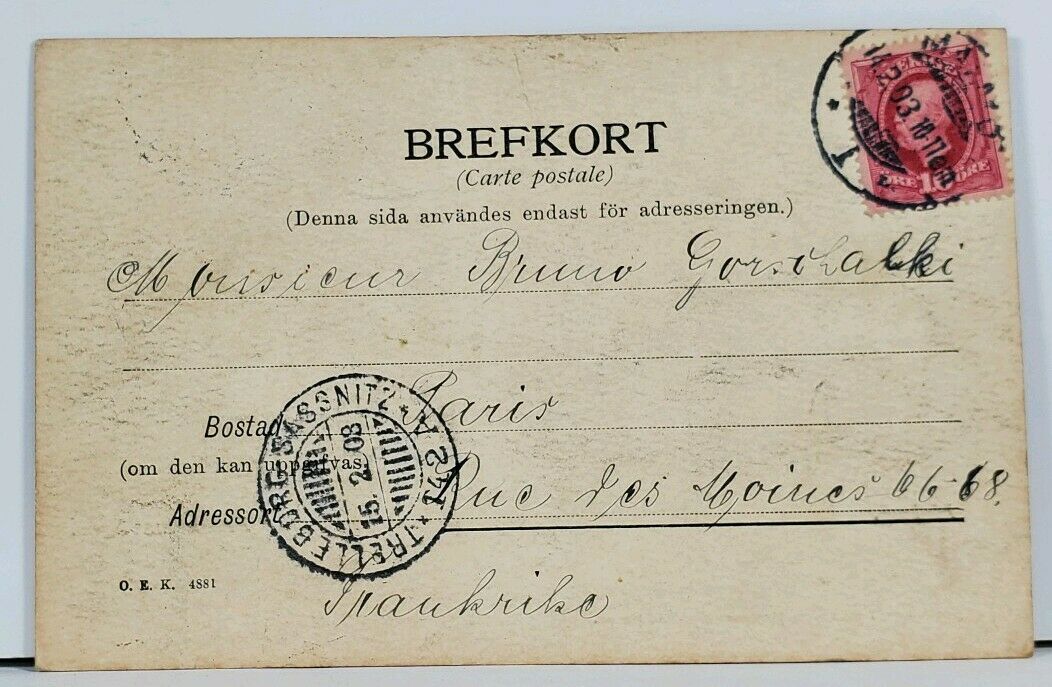 BREFKORT
(Carte postale)
(Denna sida användes endast för adresseringen.)
SVERIGE
ÖRE 10 ÖRE
MALMÖ
14 2 03
1
Monsieur Bruno
Bostad Paris
(om den kan uppgifvas)
Adressort Rue des Moines 66-68.
Frankrike
TRELLEBORG-SASSNITZ
15.2.03
142
O. E. K. 4881